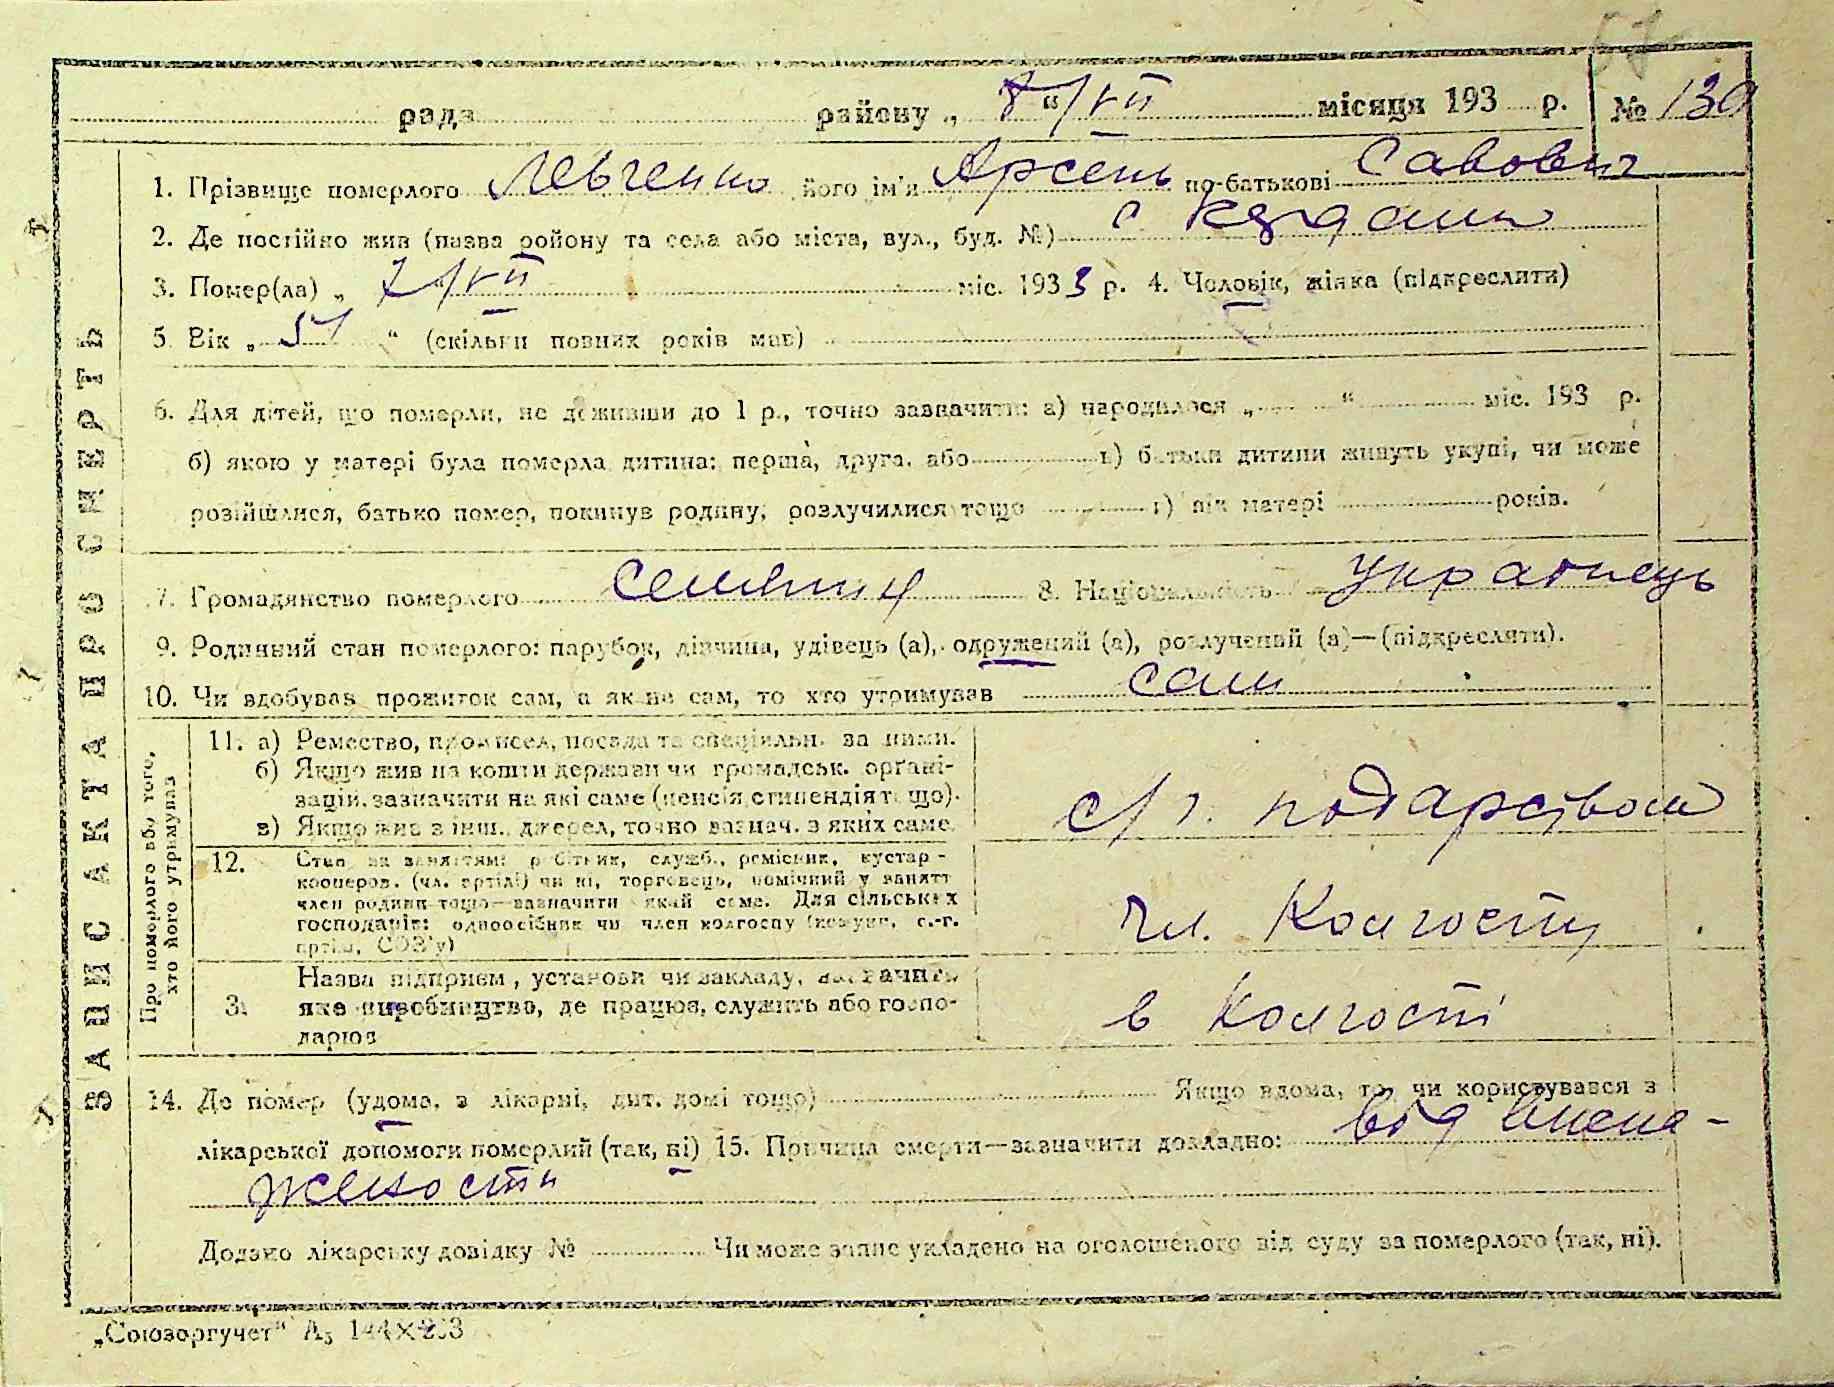 57
рада району „ 8 “/VII місяця 193 р. № 130
1. Прізвище померлого Левченко його ім'я Арсень по-батькові Савович
2. Де постійно жив (назва ройону та села або міста, вул., буд. №) с
3. Помер(ла) „ 7 “/VII міс. 1933 р. 4. Чоловік, жінка (підкреслити)
5. Вік „ 51 “ (скільки повних років мав)
6. Для дітей, що померли, не доживши до 1 р., точно зазначити: а) народилося „ “ міс. 193 р.
б) якою у матері була померла дитина: перша, друга, або в) батьки дитини живуть укупі, чи може
розійшлися, батько помер, покинув родину, розлучилися тощо г) вік матері років.
7. Громадянство померлого селянин 8. Національність Українець
9. Родинний стан померлого: парубок, дівчина, удівець (а), одружений (а), розлучений (а)—(підкресляти).
10. Чи вдобував прожиток сам, а як не сам, то хто утримував сам
11. а) Ремество, промисел, посада та спеціяльн. за ними.
б) Якщо жив на кошти держави чи громадськ. орґані-
зацій, зазначити на які саме (пенсія, стипендія тощо).
в) Якщо жив з інш. джерел, точно зазнач. з яких саме.
с/г. подарством
12. Стан за заняттям: робітник, служб., ремісник, кустар -
кооперов. (чл. артілі) чи ні, торговець, помічний у занятті
член родини тощо—зазначити який саме. Для сільських
господарів: одноосібник чи член колгоспу (комуни, с.-г.
артілі, СОЗ'у)
чл. Колгоспу
3. Назва підприєм, установи чи закладу, зазначити
яке виробництво, де працює, служить або госпо-
дарює
в колгоспі
14. Де помер (удома, в лікарні, дит. домі тощо) Якщо вдома, то чи користувався з
лікарської допомоги померлий (так, ні) 15. Причина смерти—зазначити докладно: від
Додано лікарську довідку № Чи може запис укладено на оголошеного від суду за померлого (так, ні).
ЗАПИС АКТА ПРО СМЕРТЬ
Про померлого або того,
хто його утримував
„Союзоргучет“ А₅